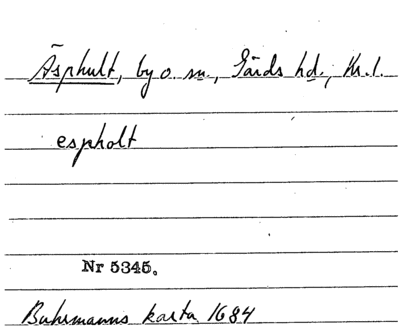 Äsphult, by o. sn., Gärds hd., Kr. l.
espholt
Nr 5345.
Buhrmanns karta 1684